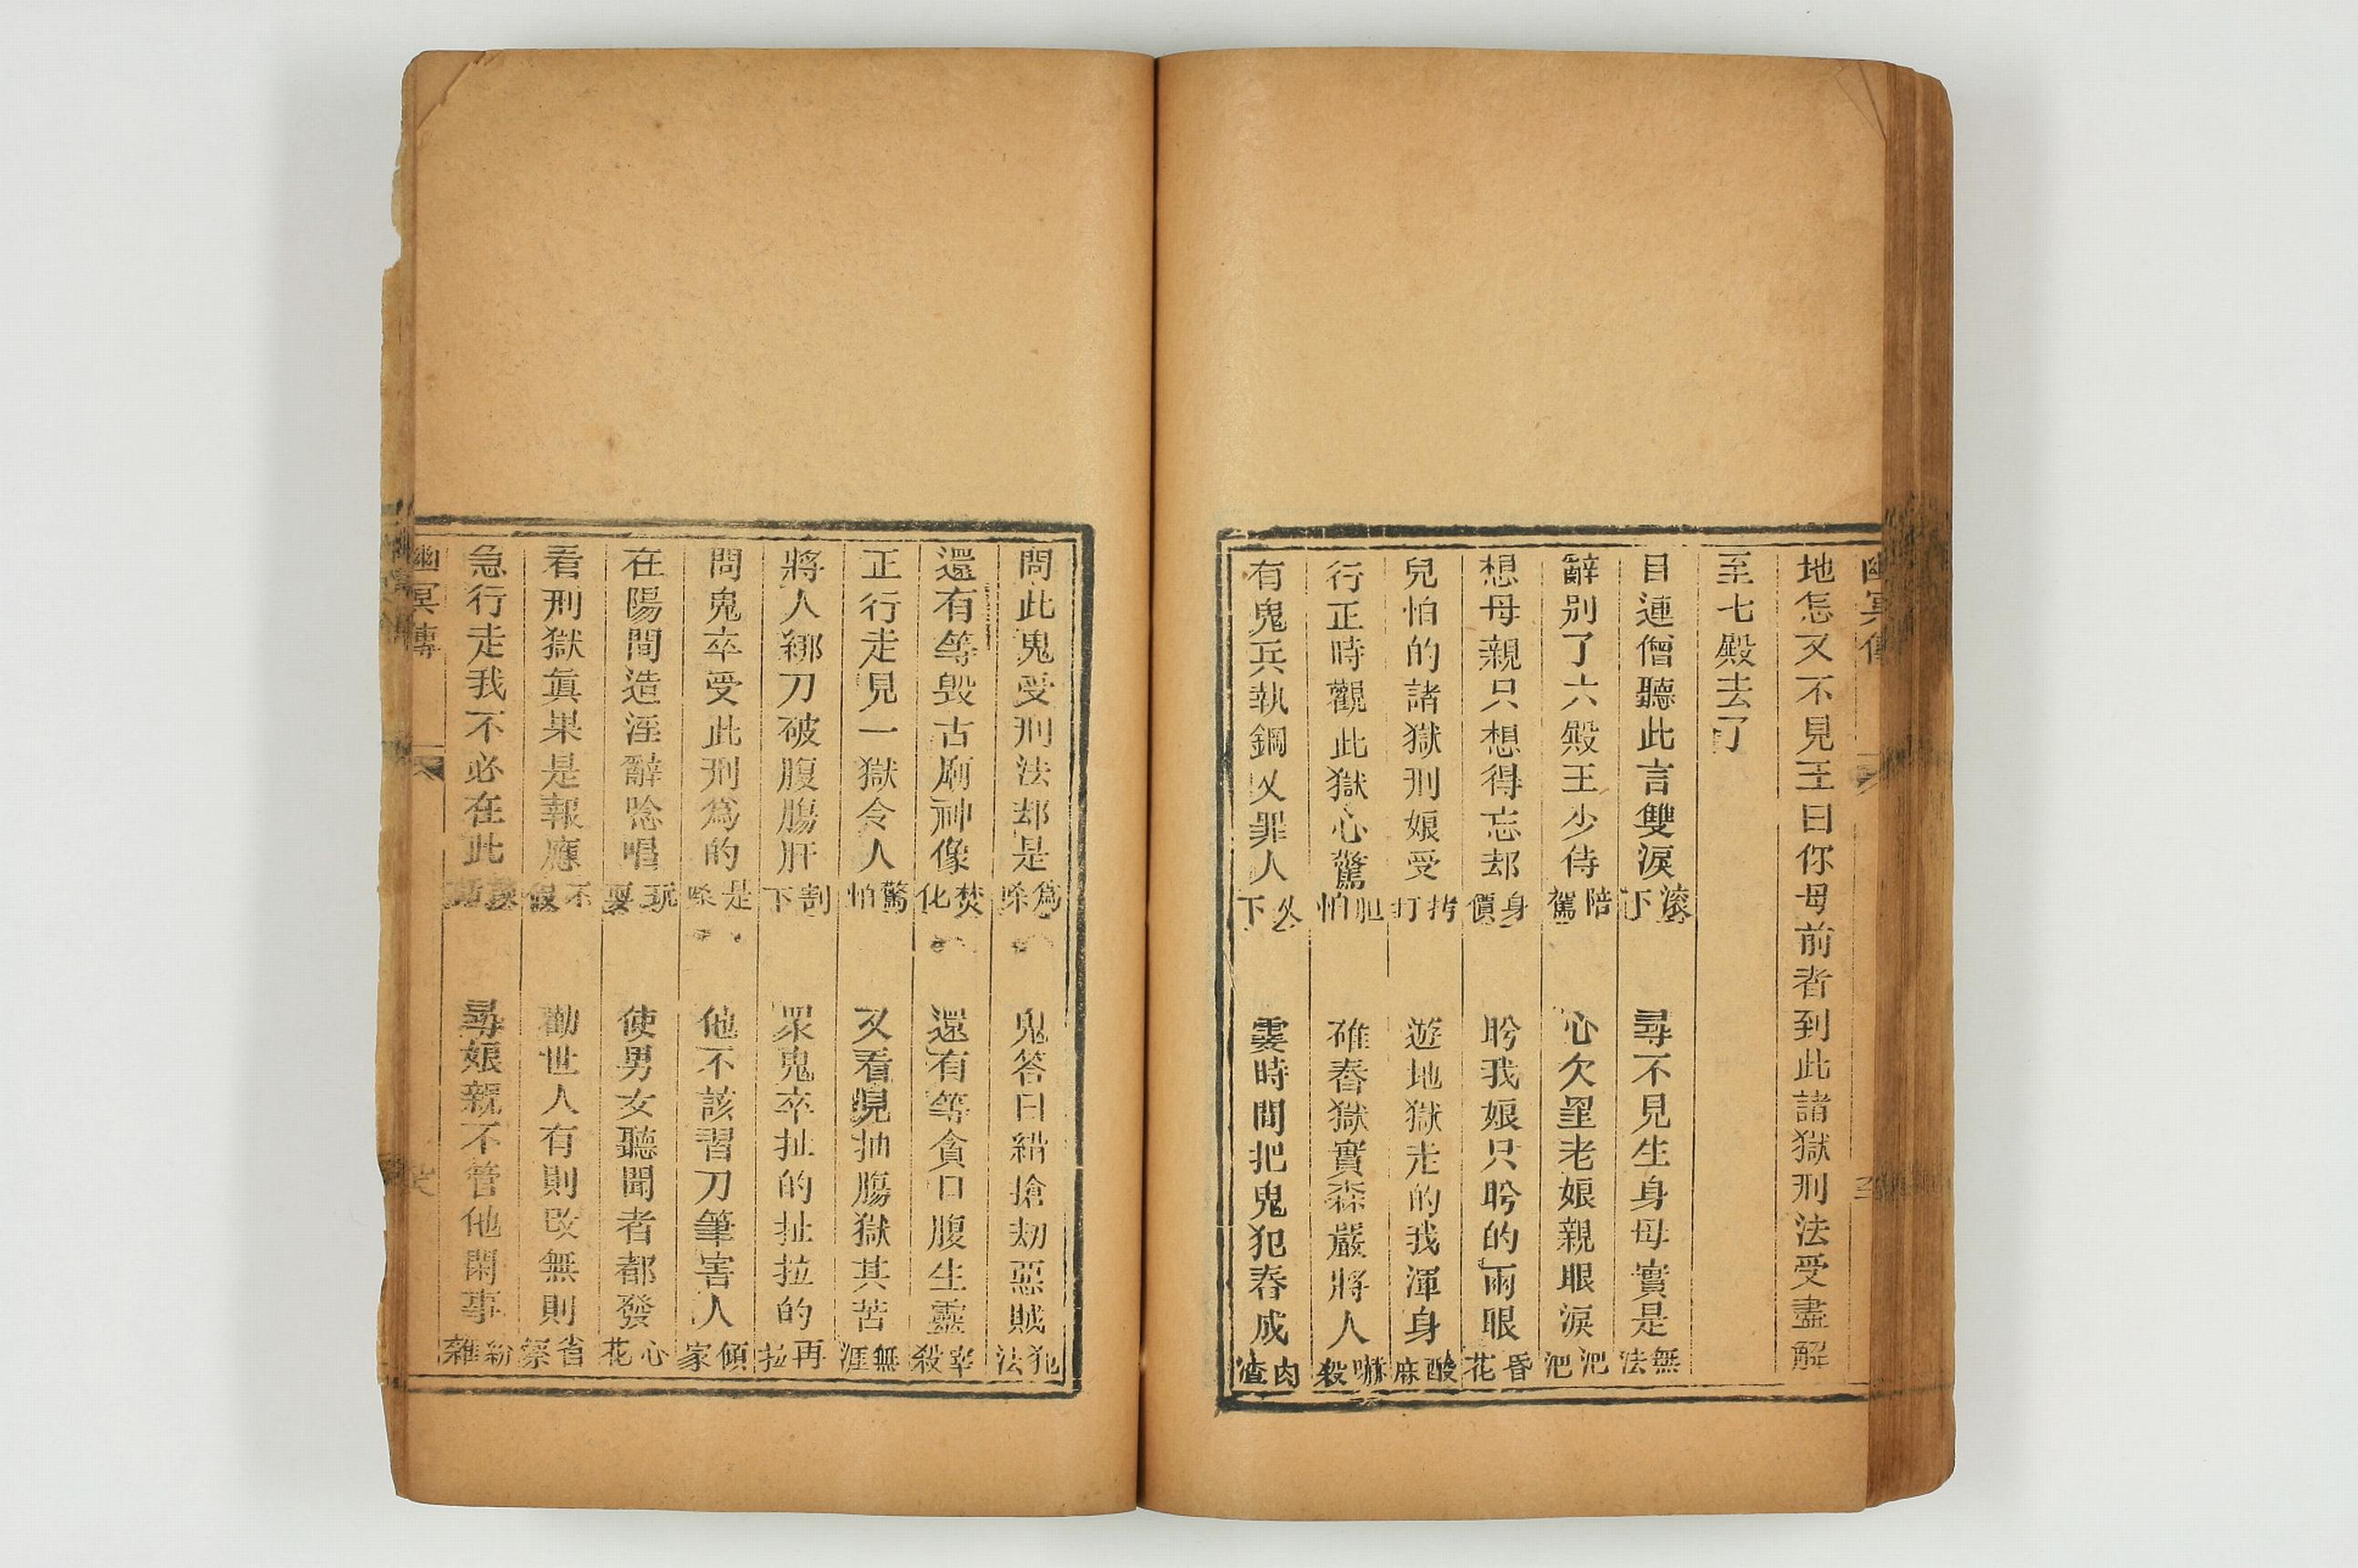 地怎又不見王曰你母前者到此諸獄刑法受盡解
至七殿去了
目連僧聽此言雙淚滚下 尋不見生身母實是無法
辭别了六殿王少侍陪駕 心欠罣老娘親眼淚汃汃
想母親只想得忘却身價 盻我娘只盻的兩眼昏花
兒怕的諸獄刑娘受拷打 遊地獄走的我渾身酸麻
行正時觀此獄心驚胆怕 碓舂獄實森嚴將人嚇殺
有鬼兵執鋼叉罪人叉下 霎時間把鬼犯舂成肉渣
問此鬼受刑法却是爲啥 鬼答曰結搶刼惡賊犯法
還有等毁古廟神像焚化 還有等貪口腹生靈宰殺
正行走見一獄令人驚怕 又看見抽腸獄其苦無涯
將人綁刀破腹腸肝割下 眾鬼卒扯的扯拉的再拉
問鬼卒受此刑爲的是啥 他不該習刀筆害人傾家
在陽間造淫辭唸唱玩耍 使男女聽聞者都發心花
看刑獄眞果是報應不假 勸世人有則改無則省察
急行走我不必在此談話 尋娘親不管他閑事紛雜
幽冥傳